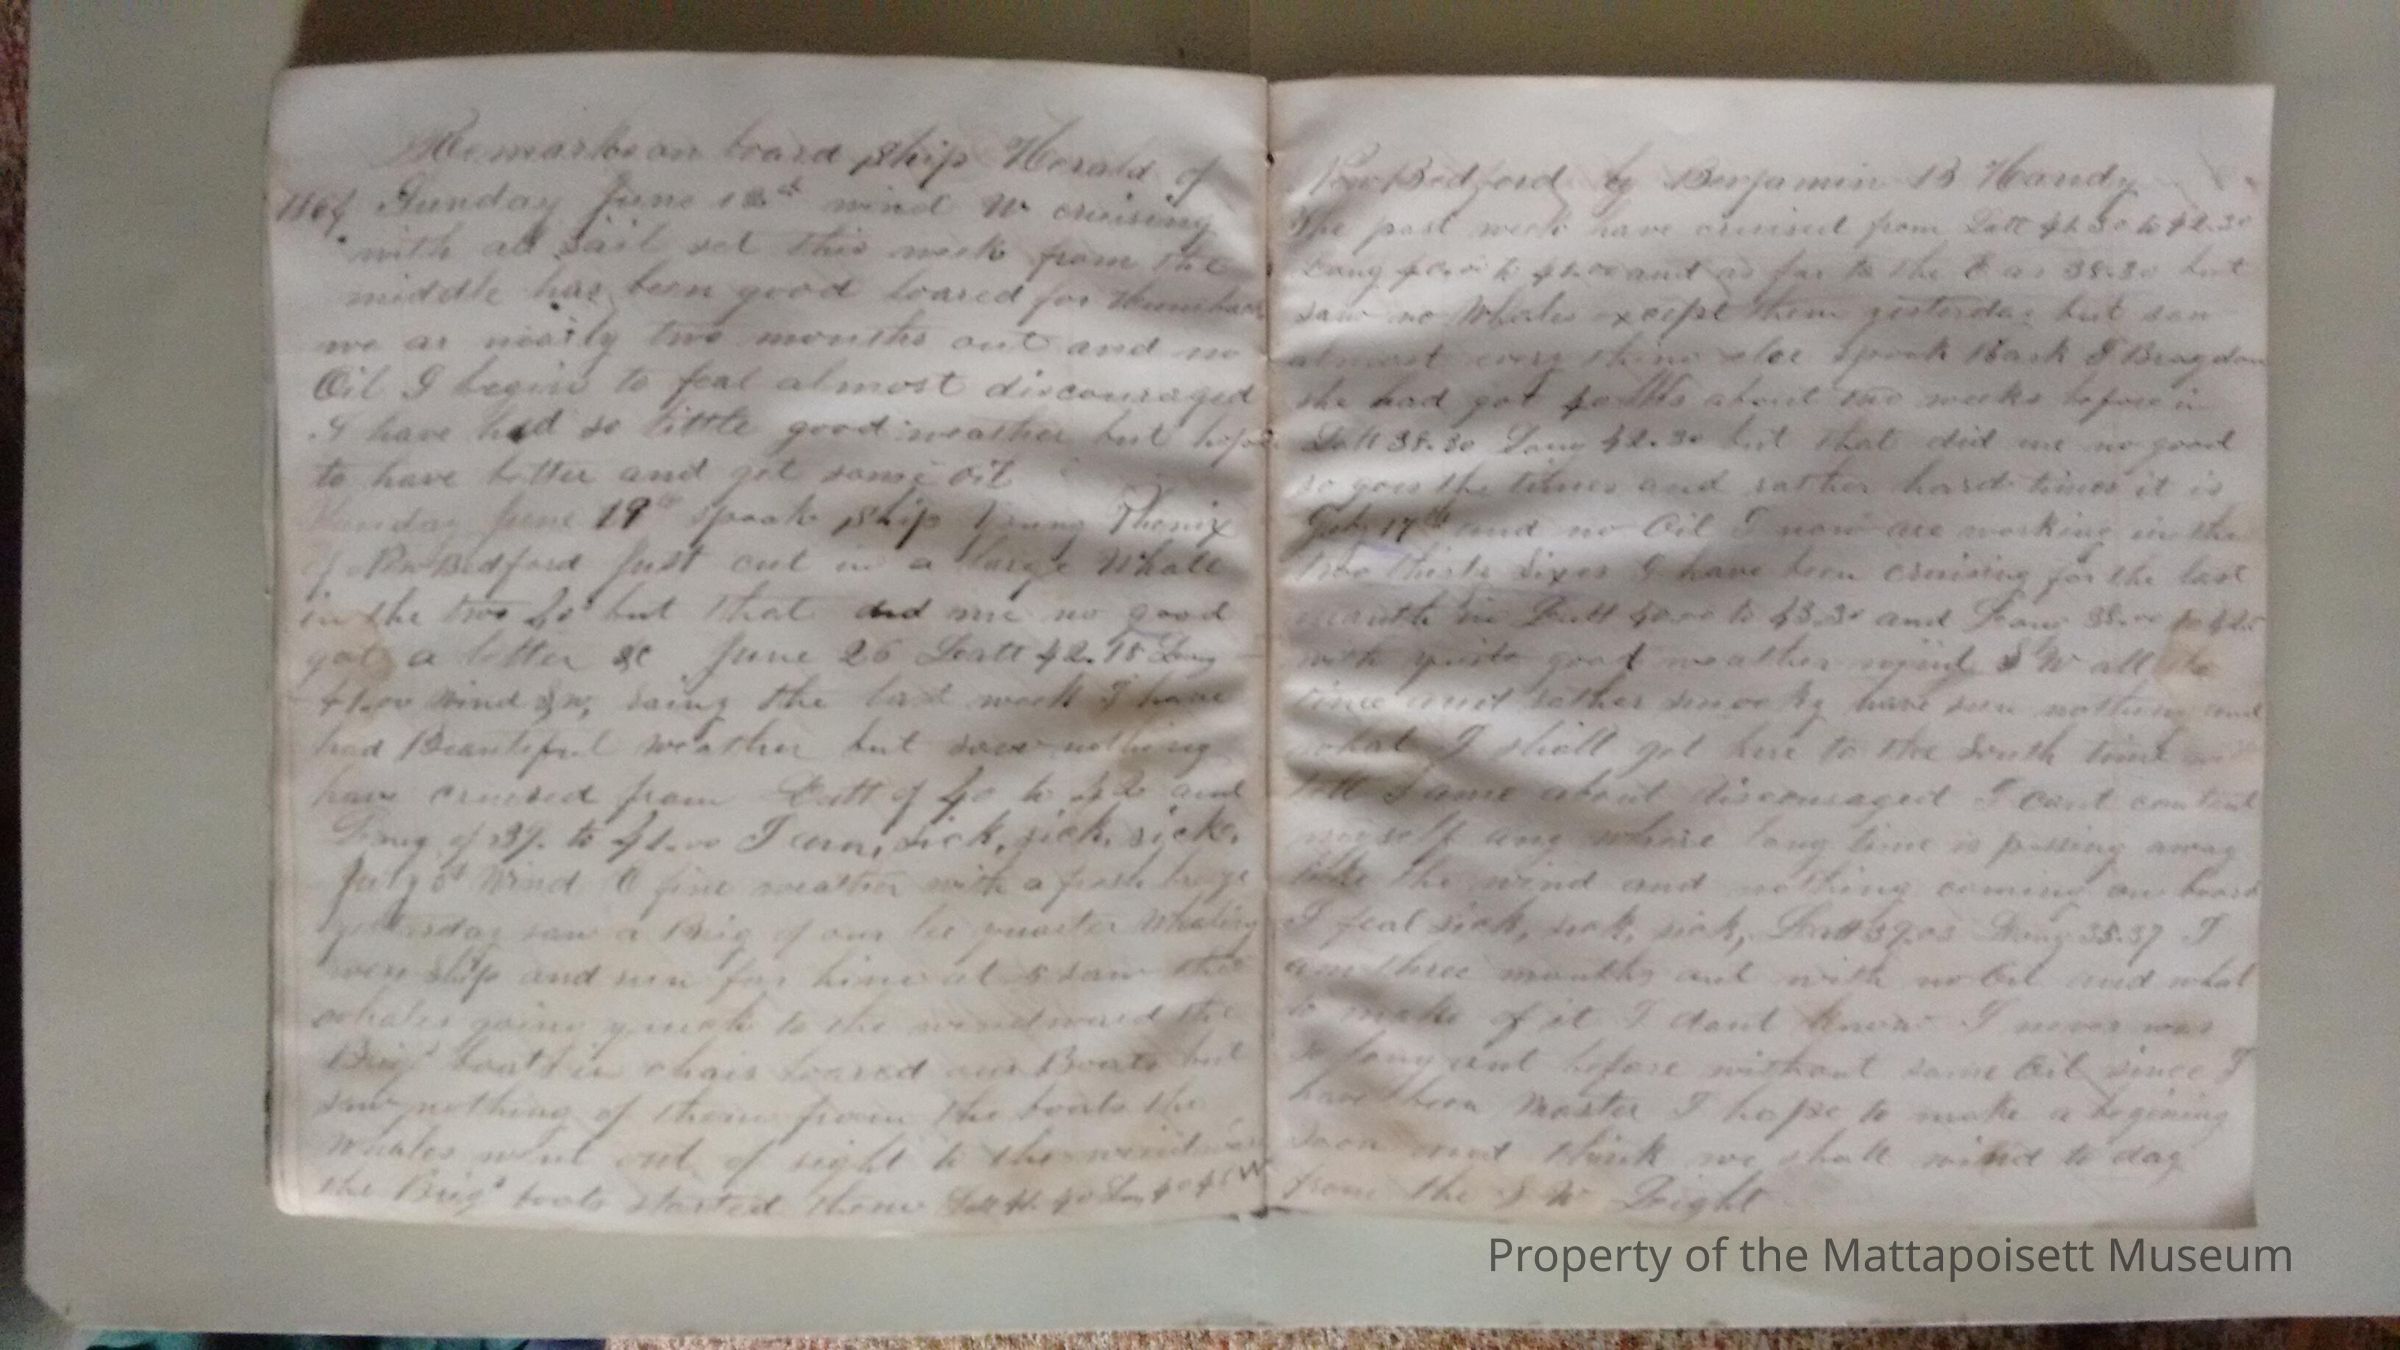 Remarks on board ship Herald of
1864 Sunday June 18th wind W cruising
with all sail set this week from the
middle has been good loared for Humpback
we ar nearly two months out and no
Oil I begin to feal almost discouraged
I have had so little good weather but hope
to have better and get some oil
Sunday June 19th spoak ship Young Phenix
of New Bedford Just cut in a large Whale
in the two 40s but that did me no good
got a letter &c June 26 Latt 42.18 Long
41.00 wind SW, raing the last week I have
had Beautiful weather but saw nothing
have cruised from Latt of 40 to 42 and
Long of 39. to 41.00 I am, sick, sick, sick,
July Wind E fine weather with a fresh breze
yesterday saw a Brig of our lee quarter Whaling
ware ship and run for him at 5 saw the
whales going quick to the windward the
Brigs boats in chais loared our Boats but
saw nothing of them from the boats the
Whales went out of sight to the windward
the Brigs boats started them Latt 41.40 Long 40.40 W
New Bedford by Benjamin B Handy
The past week have cruised from Latt 41.30 to 42.30
Long 40.00 to 41.00 and as far to the E as 38.30 but
saw no Whales except them yesterday but saw
almost every thing else spoak Bark J Bragdon
she had got 40 bbls about two weeks before in
Latt 38.30 Long 42.30 but that did me no good
so goes the times and rather hard times it is
July 17th and no Oil I now are working in the
two thirty sixes I have been cruising for the last
month in Latt 40.00 to 43.30 and Long 38.00 to 42.
with quite good weather wind SW all the
time and rather smooky have seen nothing and
what I shall get here to the South time will
tell I ame about discouraged I cant contint
myself any whare long time is passing away
like the wind and nothing coming on board
I feal sick, sick, sick, Latt 39.03 Long 35.37 I
am three months out with no Oil and what
to make of it I dont know I never was
so long out before without some Oil since I
have been Master I hope to make a begining
soon and think we shall wind to day
from the S W Light
Property of the Mattapoisett Museum